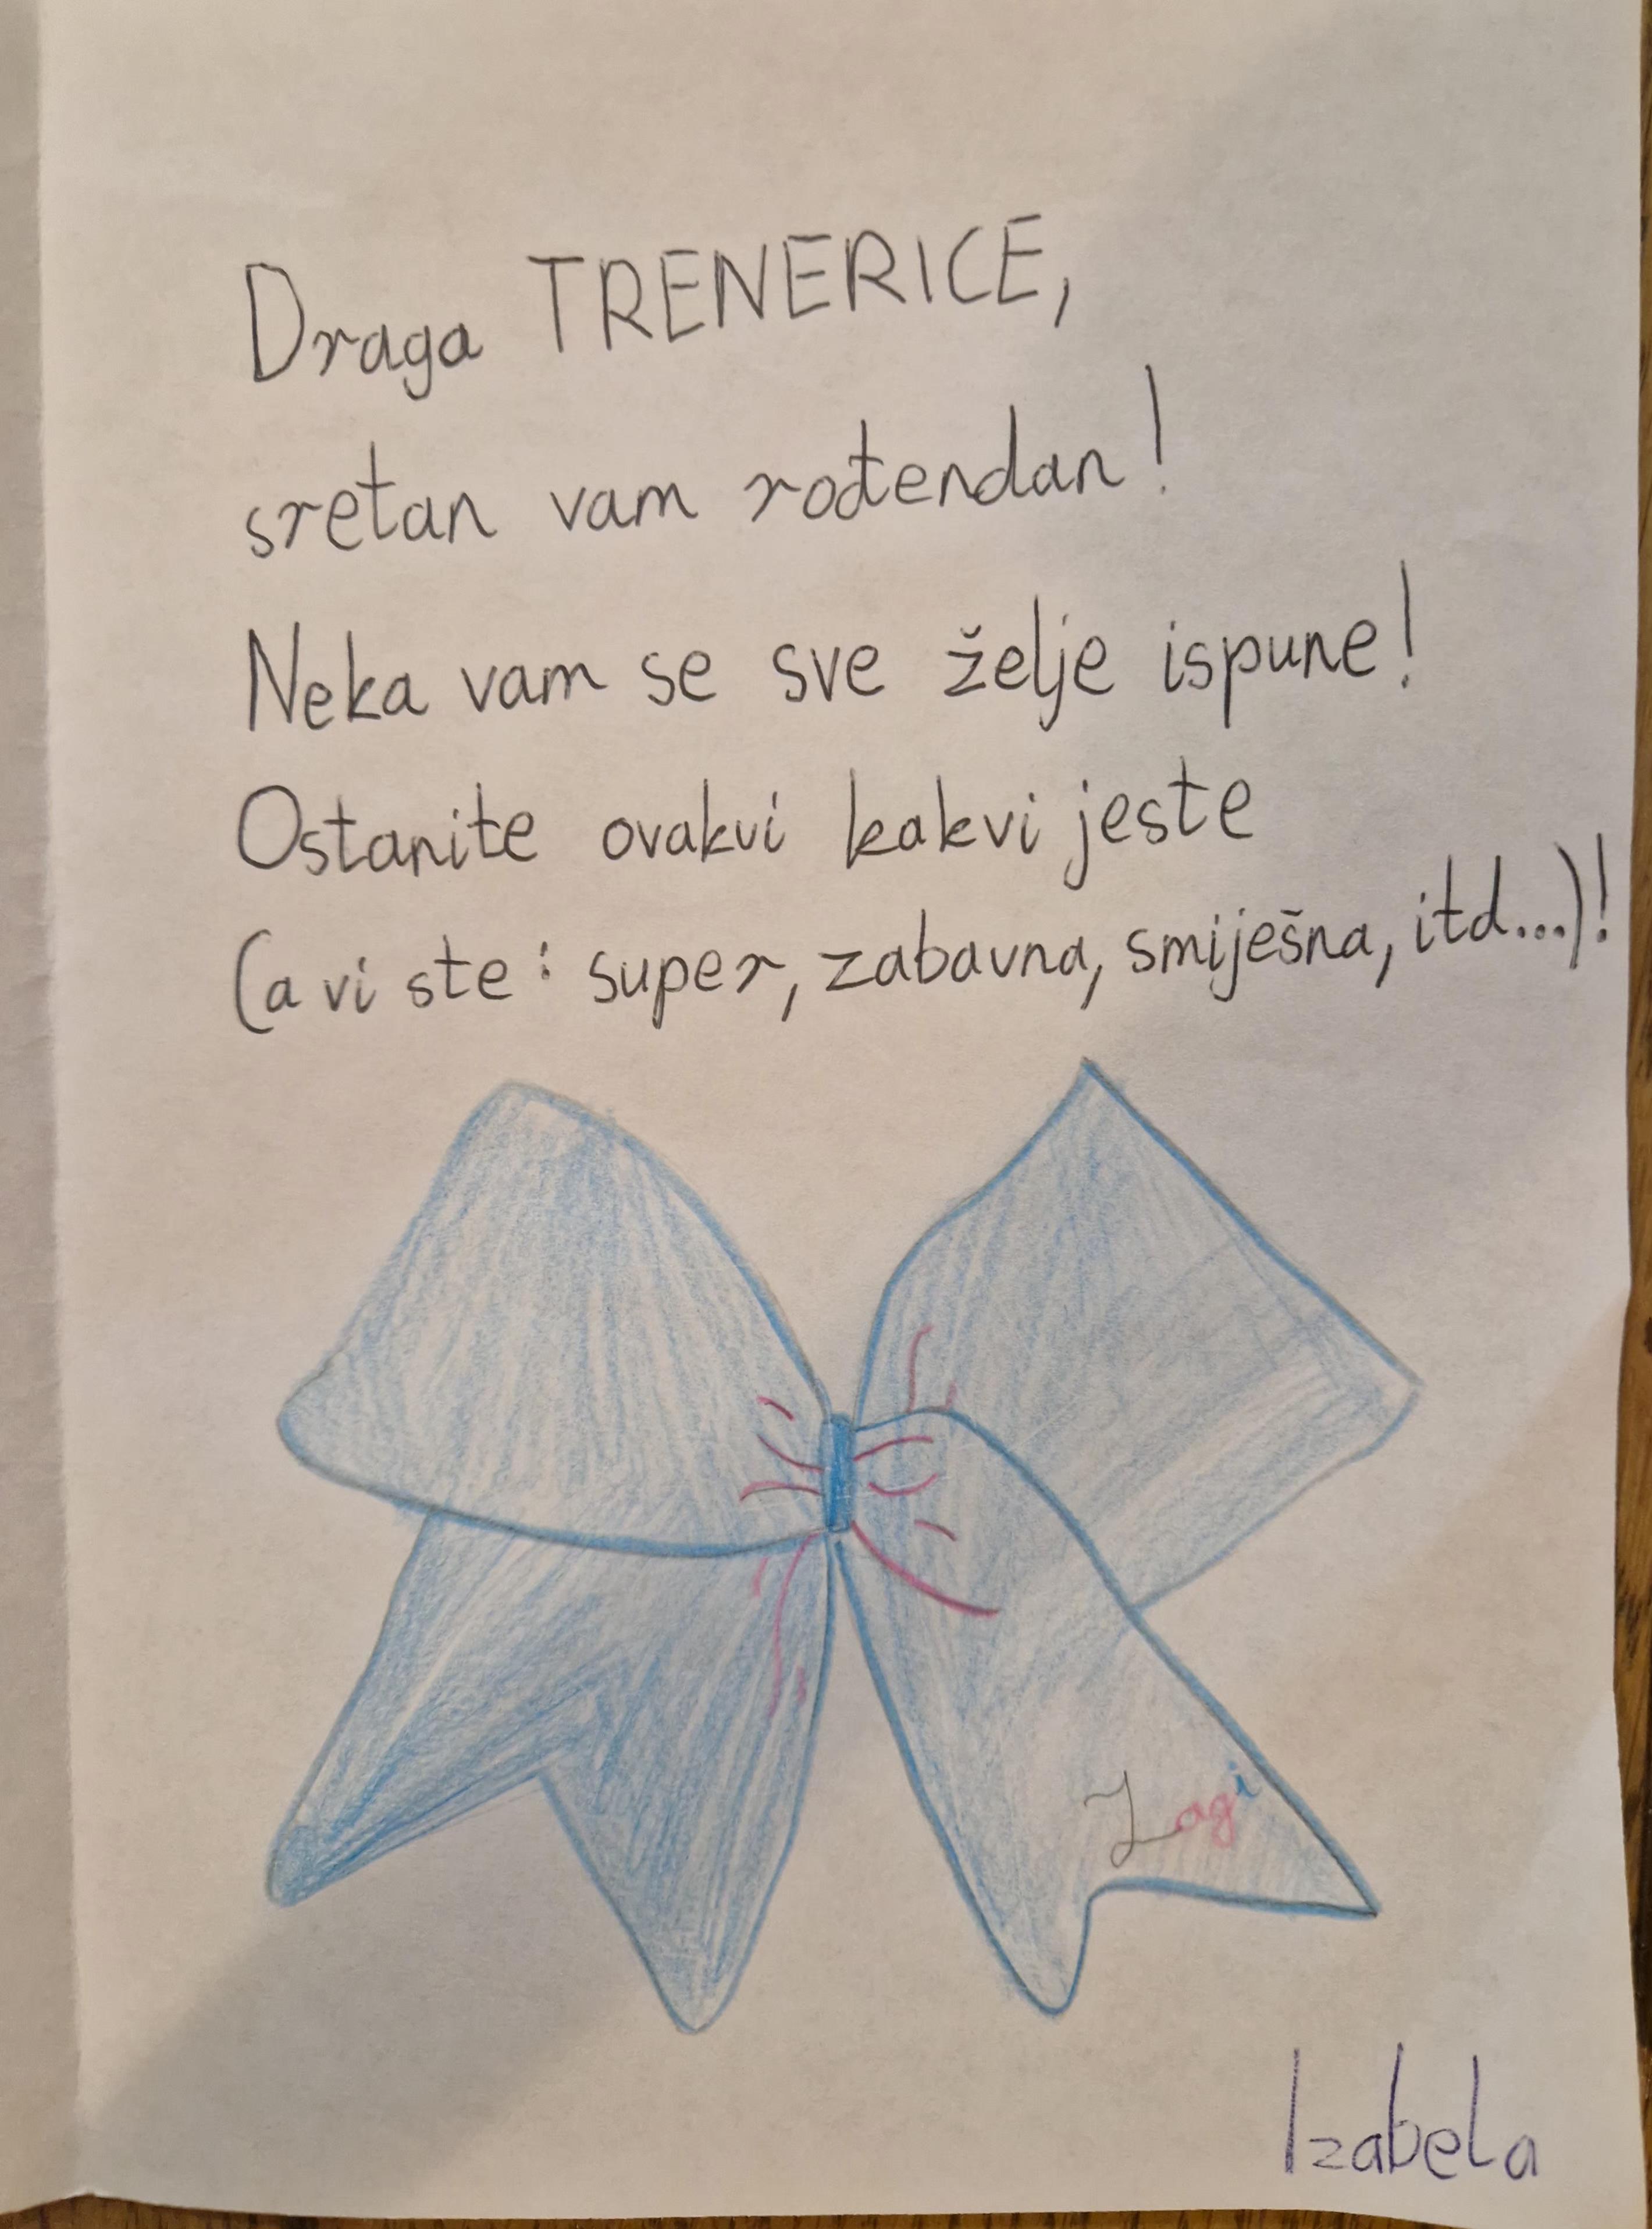 Draga TRENERICE,
sretan vam rođendan!
Neka vam se sve želje ispune!
Ostanite ovakvi kakvi jeste
(a vi ste: super, zabavna, smiješna, itd...)!
Lagi
Izabela